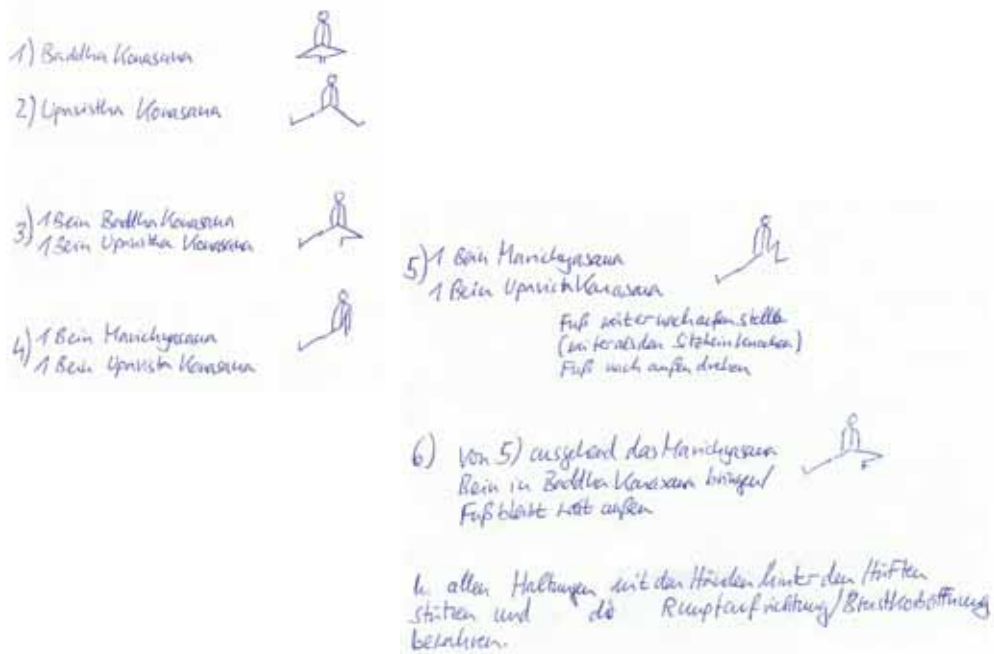 1) Baddha Konasana
2) Upavistha Konasana
3) 1 Bein Baddha Konasana
1 Bein Upavistha Konasana
4) 1 Bein Marichyasana
1 Bein Upavista Konasana
5) 1 Bein Marichyasana
1 Bein Upavista Konasana
Fuß weiter nach außen stellen
(weiter als den Sitzbeinknochen)
Fuß nach außen drehen
6) von 5) ausgehend das Marichyasana
Bein in Baddha Konasana bringen/
Fuß bleibt weit außen
In allen Haltungen mit den Händen hinter den Hüften
stützen und die Rumpfaufrichtung/Brustkorböffnung
bewahren.